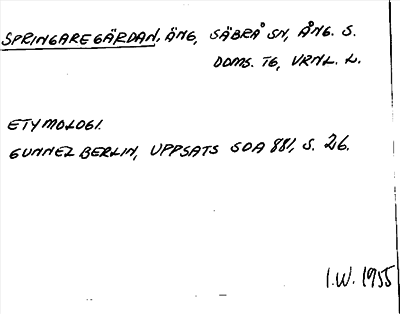 SPRINGAREGÄRDAN, ÄNG, SÄBRÅ SN, ÅNG. S.
DOMS. TG, VRNL. L.
ETYMOLOGI.
GUNNEL BERLIN, UPPSATS SOA 881, S. 26.
I.W. 1955